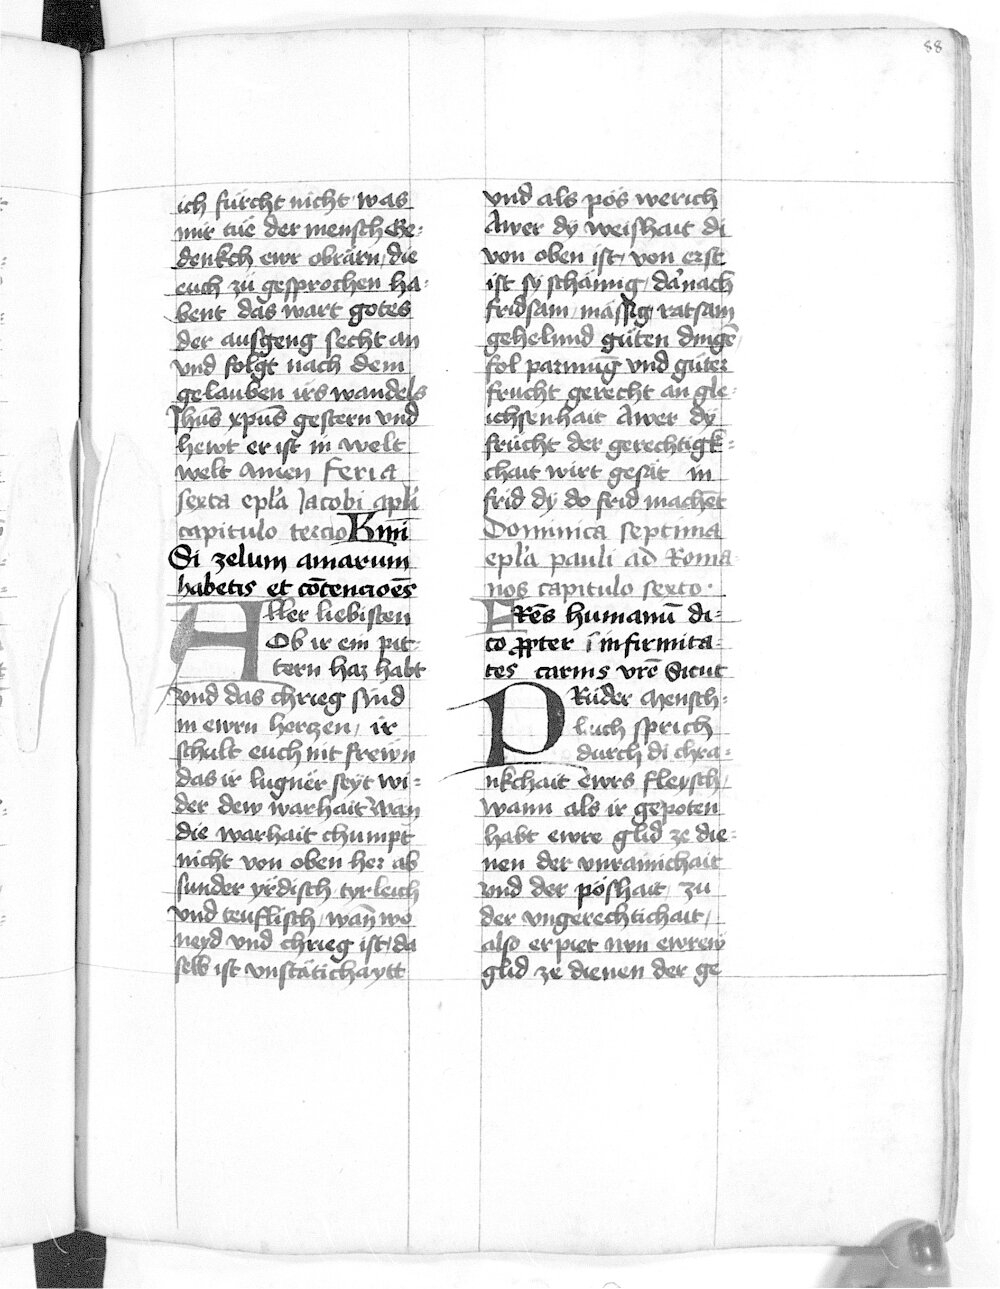 88
ich fürcht nicht was
mir tüe der mensch Ge=
denkch ewr obrärn / die
euch zü gesprochen ha=
bent das wart gotes
der ausgeng secht an
vnd folgt nach dem
gelauben irs wandels
Jhūs xpūs gestern vnd
hewt er ist in welt
welt Amen Feria
sexta epl'a Jacobi apl'i
capitulo tercio Kmī
Si zelum amarum
habetis et cōtencioēs
Aller liebisten
Ob ir ein pit
tern haz habt
vnd das chrieg sind
in ewrn herczen / ir
schult euch nit frewn
das ir lugnër seyt wi=
der dew warhait Wan
die warhait chumpt
nicht von oben her ab
sunder yrdisch / tyrleich
vnd teuflisch / wañ wo
neyd vnd chrieg ist / da
selb ist vnstätichaytt
vnd als pös werich
Awer dy weishait di
von oben ist / von erst
ist sy schämig / darnach
fridsam / mässig ratsam
gehelund güten dingē /
fol parmūg vnd güter
frucht gerecht an gle=
ichsenhait Awer dy
frücht der gerechtigk=
chait wirt gesät in
frid dy do frid machēt
Dominica septima
epl'a pauli ad Roma
nos capitulo sexto ·
FRēs humanū di=
co ꝓpter īnfirmita=
tes carnis vrē Sicut
PRüder Mensch=
leich sprich
durch di chra=
nkchait ewrs fleysch /
wann als ir gepoten
habt ewre glid ze die=
nen der vnrainichait
vnd der poshait / zu
der vngerechtichait /
also erpiet nwn ewrew
glid ze dienen der ge